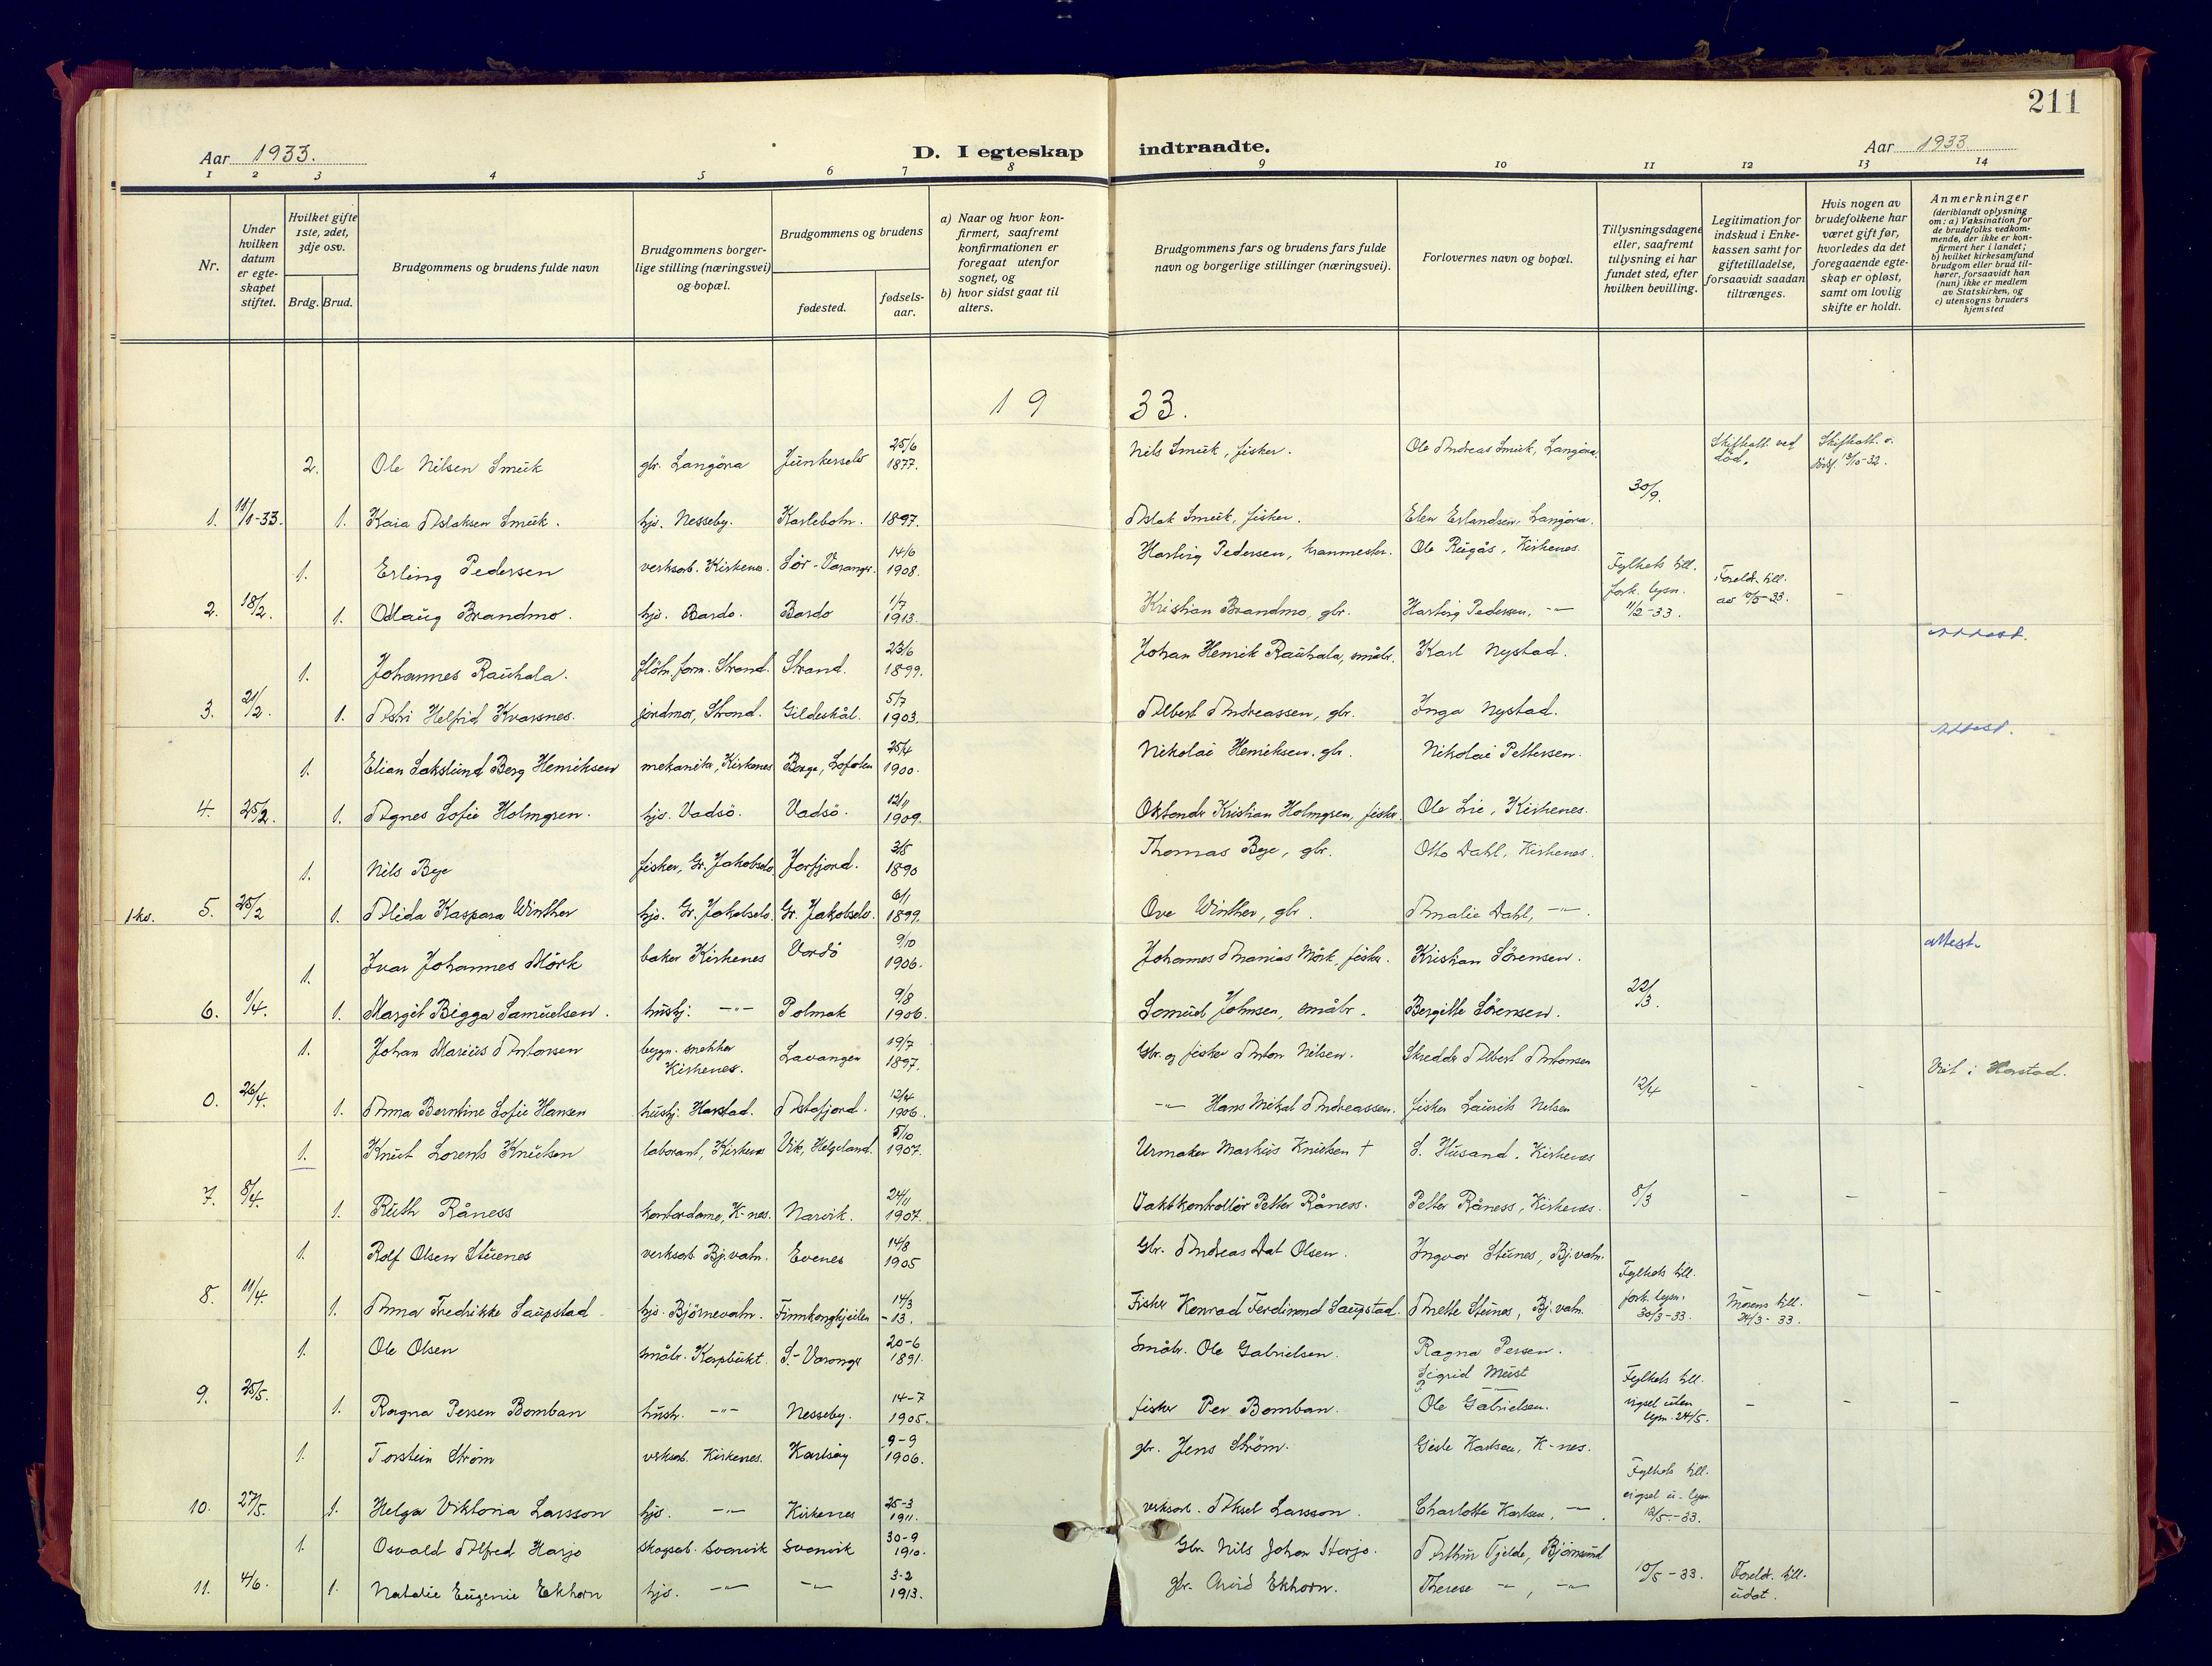 211
Aar 1933.
D. I egteskap indtraadte.
Aar 1933
1 2 3 4 5 6 7 8 9 10 11 12 13 14
Nr.
Under hvilken datum er egteskapet stiftet.
Hvilket gifte 1ste, 2det, 3dje osv.
Brdg. Brud.
Brudgommens og brudens fulde navn
Brudgommens borgerlige stilling (næringsvei) og bopæl.
Brudgommens og brudens
fødested.
fødselsaar.
a) Naar og hvor konfirmert, saafremt konfirmationen er foregaat utenfor sognet, og
b) hvor sidst gaat til alters.
Brudgommens fars og brudens fars fulde navn og borgerlige stillinger (næringsvei).
Forlovernes navn og bopæl.
Tillysningsdagene eller, saafremt tillysning ei har fundet sted, efter hvilken bevilling.
Legitimation for indskud i Enkekassen samt for giftetilladelse, forsaavidt saadan tiltrænges.
Hvis nogen av brudefolkene har været gift før, hvorledes da det foregaaende egteskap er opløst, samt om lovlig skifte er holdt.
Anmerkninger (deriblandt oplysning om: a) Vaksination for de brudefolks vedkommende, der ikke er konfirmert her i landet; b) hvilket kirkesamfund brudgom eller brud tilhører, forsaavidt han (hun) ikke er medlem av Statskirken, og c) utensogns bruders hjemsted
19 33.
2. Ole Nilsen Smuk gbr. Langøra Junkerselv 25/6 1877. Nils Smuk, fisker. Ole Andreas Smuk, Langøra. Skifteatt. ved død. Skifteatt. o.
1. 11/1-33. 1. Kaia Aslaksen Smuk. hjs. Nesseby. Karlebotn. 1897. Aslak Smuk, fisker. Elen Erlandsen, Langøra. 30/9.
1. Erling Pedersen verksarb. Kirkenes. Sör-Varanger. 14/6 1908. Hartvig Pedersen, kranmester. Ole Rugås, Kirkenes. Fylkets till. fork. lysn. 11/2-33.
2. 18/2. 1. Olaug Brandmo. hjs. Bardo. Bardo 1/7 1913. Kristian Brandmo, gbr. Hartvig Pedersen, -"- Foreldr. till. av 10/5-33. -
1. Johannes Rauhala. flöt. form. Strand. Strand. 23/6 1899. Johan Henrik Rauhala, småbr. Karl Nystad. attest.
3. 21/2. 1. Astri Helfrid Kvarsnes. jordmor, Strand. Gildeskål. 5/7 1903. Albert Andreassen, gbr. Inga Nystad.
1. Elian Lakslund Berg Henriksen mekanik, Kirkenes Borge, Lofoten 25/4 1900. Nikolai Henriksen, gbr. Nikolai Pettersen. attest.
4. 25/2. 1. Agnes Sofie Holmgren. hjs. Vadsö. Vadsö. 12/11 1909. Kristian Holmgren, fisker. Ole Lie, Kirkenes.
1. Nils Bye fisker, Gr. Jakobselv. Jarfjord. 3/5 1890 Thomas Bye, gbr. Otto Dahl, Kirkenes.
5. 25/2 1. Alida Kaspara Winther hjs. Gr. Jakobselv. Gr. Jakobselv. 6/1 1899. Ove Winther, gbr. Amalie Dahl, -"-.
1. Ivar Johannes Mörk baker Kirkenes Vardö 9/10 1906. Johannes Ananias Mörk, fisker. Kristian Sörensen. attest
6. 1/4. 1. Margit Bigga Samuelsen. hushj. -"- Polmak 9/8 1906. Samuel Johnsen, småbr. Bergitte Sörensen. 22/3.
1. Johan Marius Antonsen bygn. snekker Kirkenes. Lavangen 19/7 1897. Gbr. og fisker Anton Nilsen. Skredder Albert Antonsen
0. 26/4. 1. Anna Berntine Sofie Hansen hushj. Harstad. Astafjord. 12/4 1906. -"- Hans Mikal Andreassen. fisker Laurits Nilsen 12/4 - - Viet i Harstad.
1. Knut Lorents Knutsen laborant, Kirkenes Vik, Helgeland. 5/10 1907. Urmaker Markus Knutsen † S. Husand. Kirkenes
7. 8/4. 1. Ruth Råness kontordame, K-nes. Narvik. 24/11 1907. Vaktkontrollör Petter Råness. Petter Råness, Kirkenes. 8/3 - - -
1. Rolf Olsen Stuenes verksarb. Bj.vatn. Evenes 14/8 1905 Gbr. Andreas Dat Olsen. Ingvar Stunes, Bj.vatn.
8. 11/4. 1. Anna Fredrikke Saupstad hjs. Björnevatn. Finnkongkjeilen 14/3 -13. Fisker Konrad Ferdinand Saupstad. Anette Stunes, Bj.vatn. Fylkets till. fork. lysn. 30/3-33. Morens till. 24/3-33. - -
1. Ole Olsen småbr. Karpbukt. S.-Varanger 20-6 1891. Småbr. Ole Gabrielsen. Ragna Persen. Sigrid Must
9. 25/5. 1. Ragna Persen Bomban hustr. -"- Nesseby. 14-7 1905. fisker Per Bomban. Ole Gabrielsen. Fylkets till. vigsel uten lysn. 24/5. - - -
1. Torstein Ström verksarb. Kirkenes. Karlsöy 9-9 1906. gbr. Jens Ström. Gisle Karlsen, K-nes.
10. 27/5. 1. Helga Viktoria Larsson hjs. -"- Kirkenes 25-3 1911. verksarb. Aksel Larsson. Charlotte Karlsen, -"-. Fylkets till. vigsel u. lysn. 12/5-33.
1. Osvald Alfred Harjo skogsarb. Svanvik Svanvik 30-9 1910. Gbr. Nils Johan Harjo. Arthur Fjelde, Björnsund
11. 4/6. 1. Natalie Eugenie Ekhorn hjs. -"- -"- 3-2 1913. gbr. Arvid Ekhorn. Therese -"-, -"- 10/5-33. Foreldr. till. udat.
1 ko.